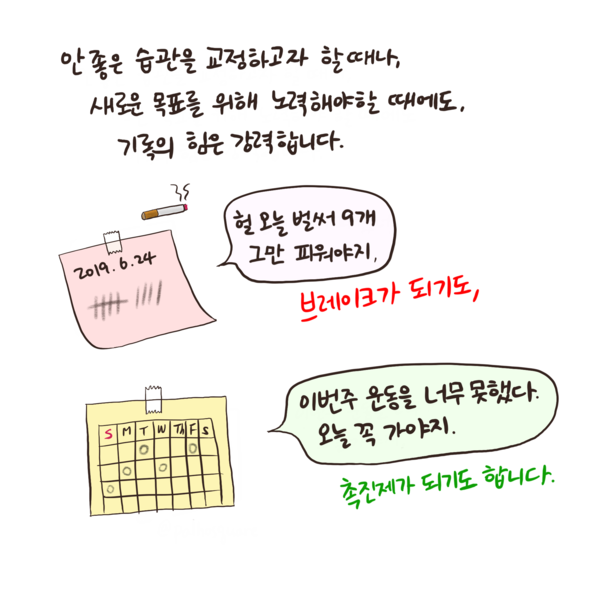 안 좋은 습관을 교정하고자 할때나,
새로운 목표를 위해 노력해야할 때에도,
기록의 힘은 강력합니다.
헐 오늘 벌써 9개
그만 피워야지.
2019. 6. 24
브레이크가 되기도,
이번주 운동을 너무 못했다.
오늘 꼭 가야지.
S M T W Th F S
촉진제가 되기도 합니다.